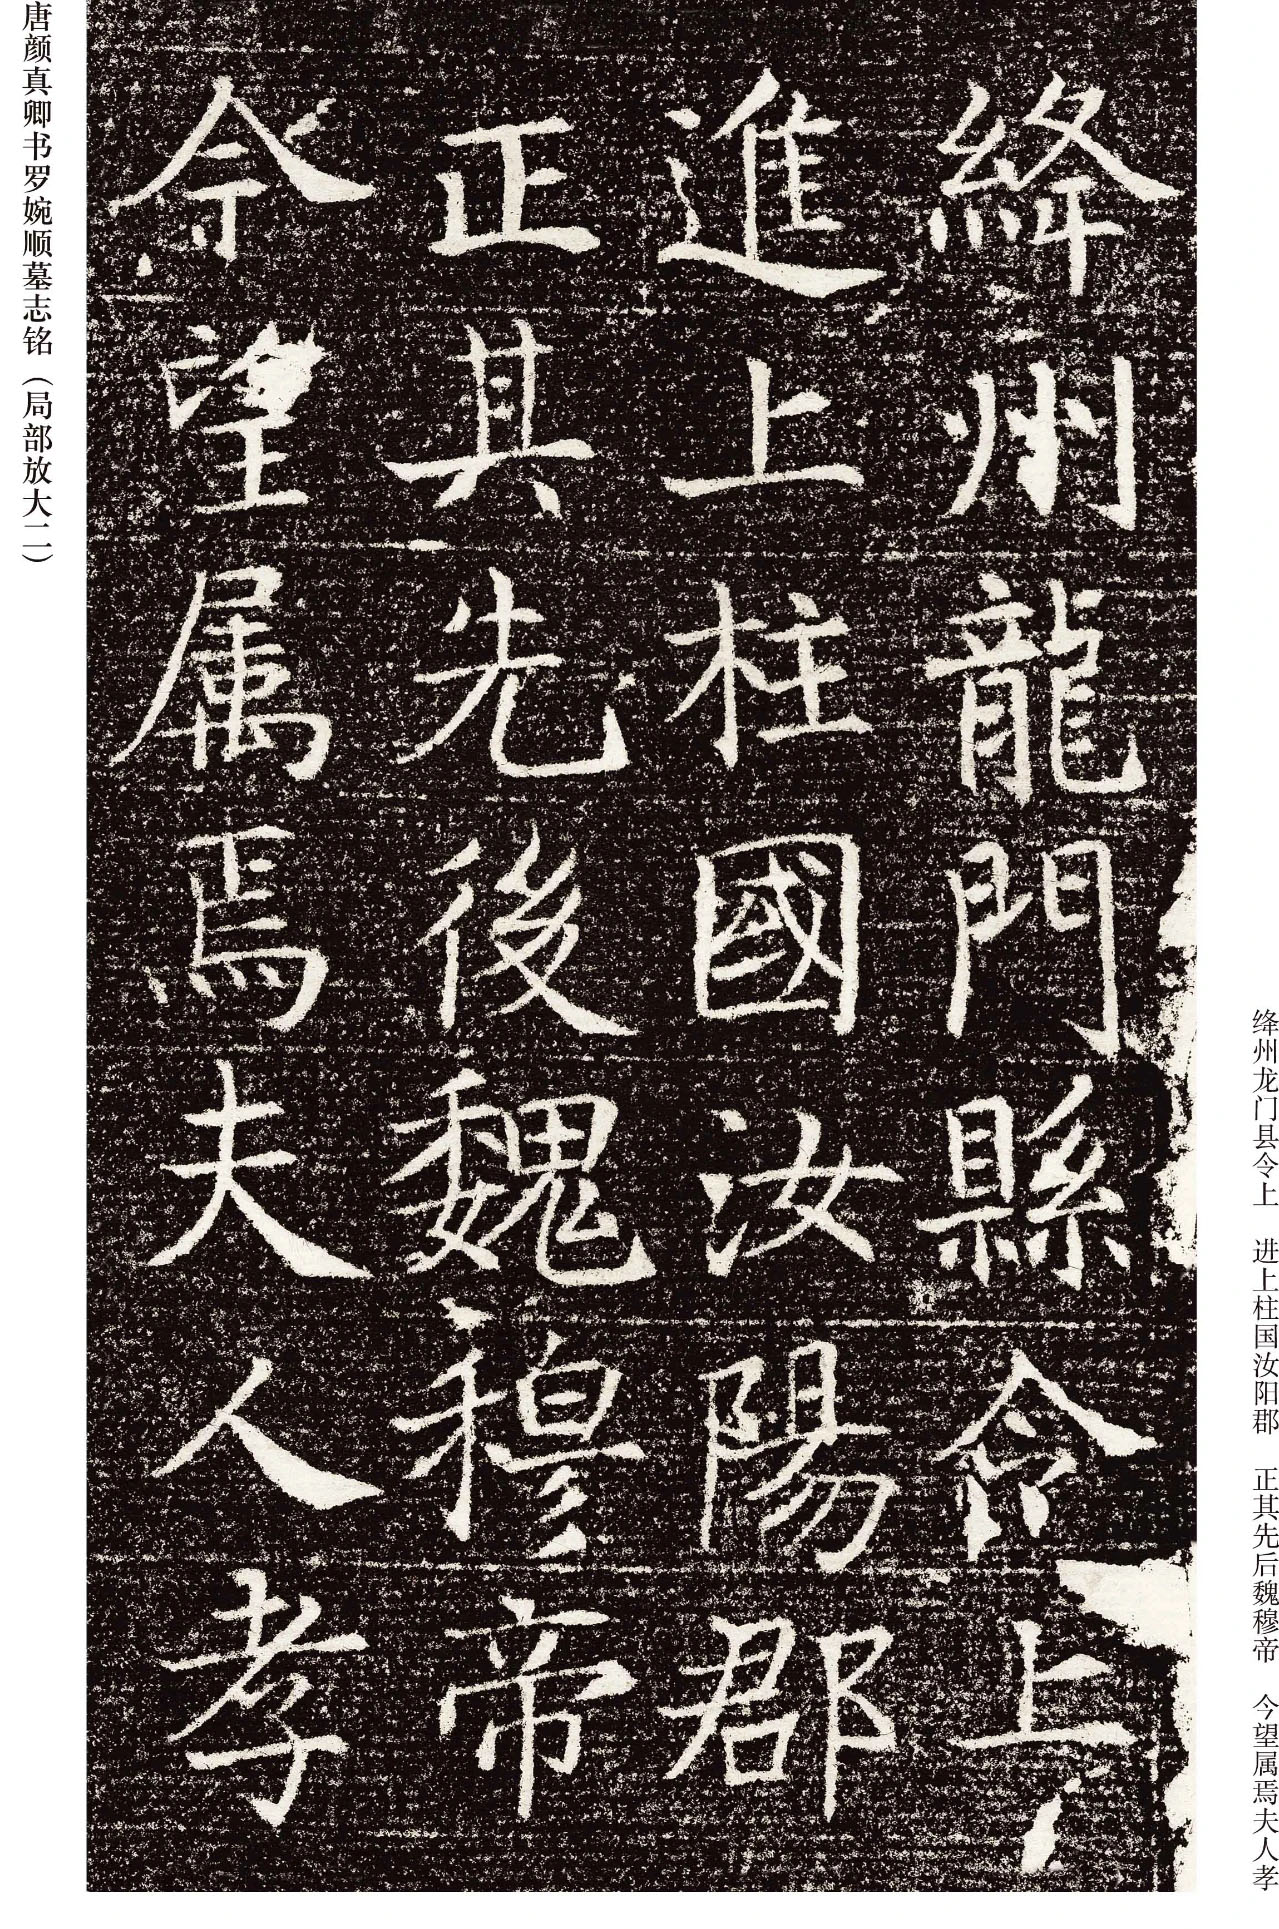 绛州龙门县令上　进上柱国汝阳郡　正其先后魏穆帝　今望属焉夫人孝
絳州龍門縣令上
進上柱國汝陽郡
正其先後魏穆帝
今望属焉夫人孝
唐颜真卿书罗婉顺墓志铭（局部放大二）